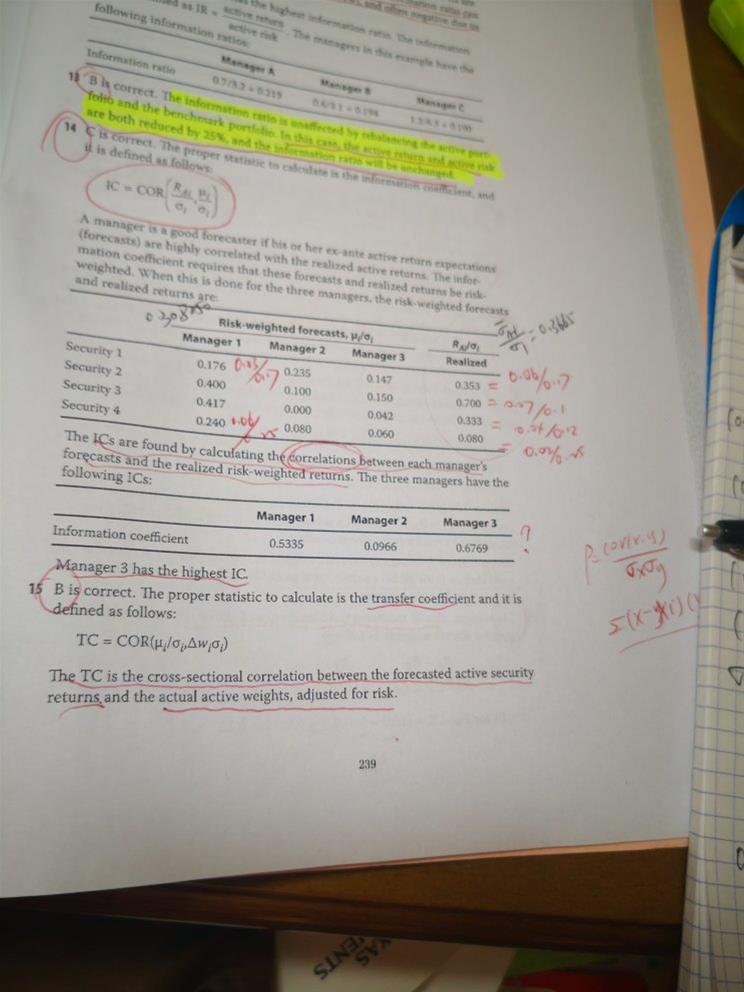 and often negative due to
has the highest information ratio. The information
ned as IR = active return / active risk . The managers in this example have the
following information ratios:
Manager A Manager B Manager C
Information ratio 0.7/3.2 = 0.219 0.6/3.1 = 0.194
13 B is correct. The information ratio is unaffected by rebalancing the active port-
folio and the benchmark portfolio. In this case, the active return and active risk
are both reduced by 25%, and the information ratio will be unchanged.
14 C is correct. The proper statistic to calculate is the information coefficient, and
it is defined as follows:
IC = COR(R_Ai/σ_i, μ_i/σ_i)
A manager is a good forecaster if his or her ex-ante active return expectations
(forecasts) are highly correlated with the realized active returns. The infor-
mation coefficient requires that these forecasts and realized returns be risk-
weighted. When this is done for the three managers, the risk-weighted forecasts
and realized returns are:
= 0.3665
Risk-weighted forecasts, μ_i/σ_i R_Ai/σ_i
Manager 1 Manager 2 Manager 3 Realized
Security 1 0.176 0.03/0.17 0.235 0.147 0.353 = 0.06/0.17
Security 2 0.400 0.100 0.150 0.700 = 0.07/0.1
Security 3 0.417 0.000 0.042 0.333 = 0.04/0.12
Security 4 0.240 0.080 0.060 0.080
The ICs are found by calculating the correlations between each manager's
forecasts and the realized risk-weighted returns. The three managers have the
following ICs:
Manager 1 Manager 2 Manager 3
Information coefficient 0.5335 0.0966 0.6769 ?
Manager 3 has the highest IC.
15 B is correct. The proper statistic to calculate is the transfer coefficient and it is
defined as follows:
TC = COR(μ_i/σ_i,Δw_iσ_i)
The TC is the cross-sectional correlation between the forecasted active security
returns, and the actual active weights, adjusted for risk.
239